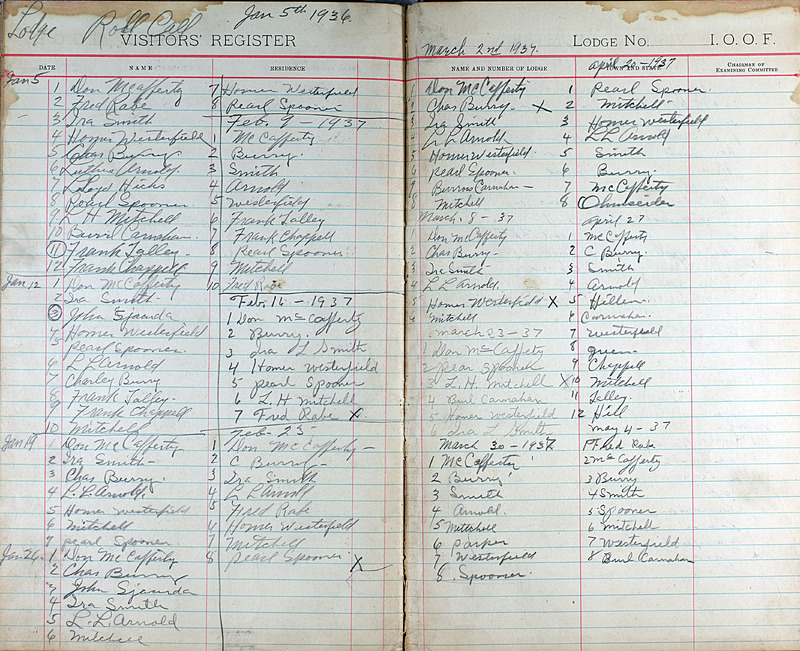 Lodge Roll Call Jan 5th 1936.
VISITORS' REGISTER
DATE NAME RESIDENCE
Jan 5 1 Don McCafferty
2 Fred Rabe
3 Ira Smith
4 Homer Westerfield
5 Chas Burry
6 Luther Arnold
7 Lloyd Hicks
8 Pearl Spooner
9 L H Mitchell
10 Burrl Carnahan
11 Frank Talley
12 Frank Chappell
Jan 12 1 Don McCafferty
2 Ira Smith
3 John Sjaarda
4 Homer Westerfield
5 Pearl Spooner
6 L L Arnold
7 Charley Burry
8 Frank Talley
9 Frank Chappell
10 Mitchell
Jan 19 1 Don McCafferty
2 Ira Smith
3 Chas Burry
4 L. L. Arnold
5 Homer Westerfield
6 Mitchell
7 pearl Spooner
Jan 26 1 Don McCafferty
2 Chas Burry
3 John Sjaarda
4 Ira Smith
5 L. L. Arnold
6 Mitchell
7 Homer Westerfield
8 Pearl Spooner
Feb 9 - 1937
1 McCafferty
2 Burry
3 Smith
4 Arnold
5 Westerfield
6 Frank Talley
7 Frank Chappell
8 Pearl Spooner
9 Mitchell
10 Fred
Feb. 16 - 1937
1 Don McCafferty
2 Burry
3 Ira L Smith
4 Homer Westerfield
5 pearl Spooner
6 L. H Mitchell
7 Fred Rabe X
Feb 23 -
1 Don McCafferty
2 C Burry
3 Ira Smith
4 L L Arnold
5 Fred Rabe
6 Homer Westerfield
7 Mitchell
8 Pearl Spooner X
March 2nd 1937.
LODGE NO. I. O. O. F.
NAME AND NUMBER OF LODGE TOWN AND STATE CHAIRMAN OF EXAMINING COMMITTEE
1 Don McCafferty
2 Chas Burry X
3 Ira Smith
4 L L Arnold
5 Homer Westerfield
6 Pearl Spooner
Burross Carnahan
8 Mitchell
March 8 - 37
1 Don McCafferty
2 Chas Burry
3 Ira Smith
4 L. L. Arnold
5 Homer Westerfield X
6 Mitchell
march 23 - 37
1 Don McCaffety
2 pearl Spooner
3 L. H. Mitchell X
4 Burl Carnahan
5 Homer Westerfield
6 Ira L Smith
March 30 - 1937
1 McCafferter
2 Burry
3 Smith
4 Arnold.
5 Mittchell
6 Parker
7 Westerfield
8 Spooner.
april 20 - 1937
1 Pearl Spooner
2 Mitchell
3 Homer Westerfield
4 L L Arnold
5 Smith
6 Burry
7 McCafferty
8 Ohmseider
april 27
1 McCafferty
2 C Burry.
3 Smith
4 Arnold
5 Hillen
6 Carnahan.
7 Westerfield
8
9 Chappell
10 Mitchell
11 Talley.
12 Hill
may 4 - 37
1 Fred Rabe
2 McCafferty
3 Burry
4 Smith
5 Spooner
6 Mitchell
7 Westerfield
8 Burl Carnahan